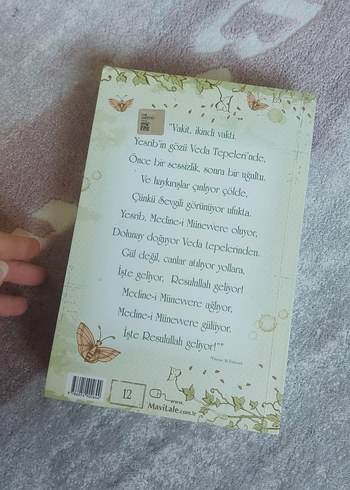 "Vakit, ikindi vakti.
Yesrib'in gözü Veda Tepeleri'nde,
Önce bir sessizlik, sonra bir uğultu.
Ve haykırışlar çınlıyor çölde,
Çünkü Sevgili görünüyor ufukta.
Yesrib, Medine-i Münevvere oluyor,
Dolunay doğuyor Veda tepelerinden.
Gül değil, canlar atılıyor yollara,
İşte geliyor, Resulullah geliyor!
Medine-i Münevvere ağlıyor,
Medine-i Münevvere gülüyor.
İşte Resulullah geliyor!""
12
www.
Mavilale.com.tr